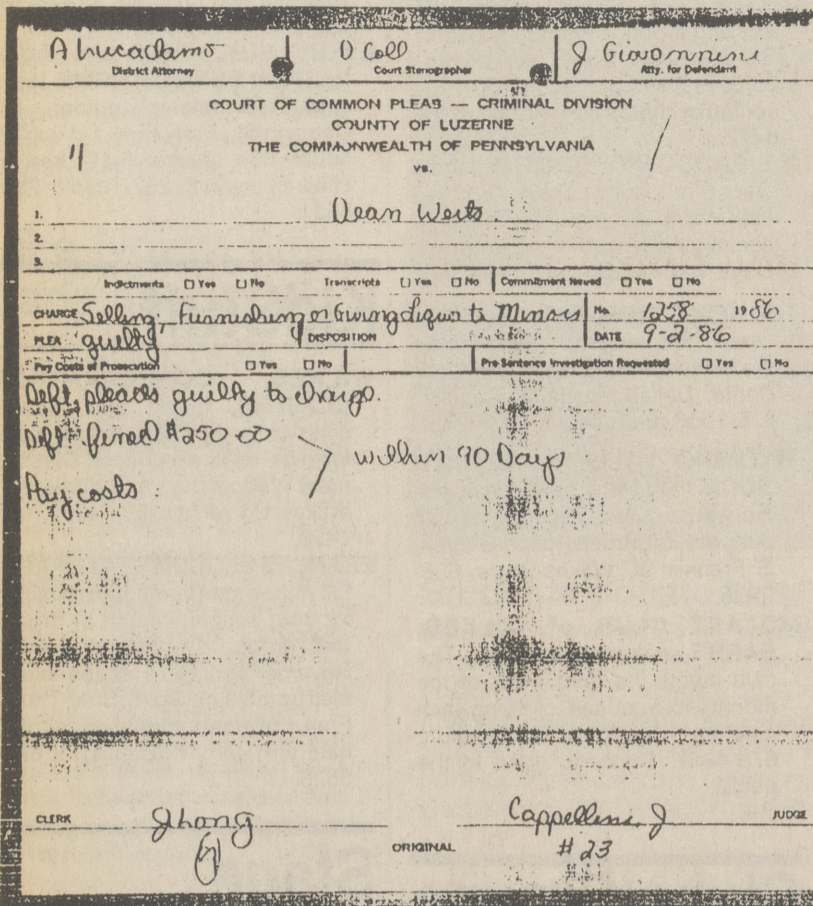 A Lucadamo D Coll J Giovannini
District Attorney Court Stenographer Atty. for Defendant
COURT OF COMMON PLEAS — CRIMINAL DIVISION
COUNTY OF LUZERNE
THE COMMONWEALTH OF PENNSYLVANIA
vs.
1. Dean Weits
2.
3.
Indictments ☐ Yes ☐ No Transcripts ☐ Yes ☐ No Commitment Issued ☐ Yes ☐ No
CHARGE Selling, Furnishing or Giving Liquor to Minors No. 1258 1986
PLEA guilty DISPOSITION DATE 9-2-86
Pay Costs of Prosecution ☐ Yes ☐ No Pre Sentence Investigation Requested ☐ Yes ☐ No
Deft. pleads guilty to charge.
Deft. fined $250.00
within 90 Days
Pay costs
CLERK JLong Cappellini, J JUDGE
ORIGINAL # 23